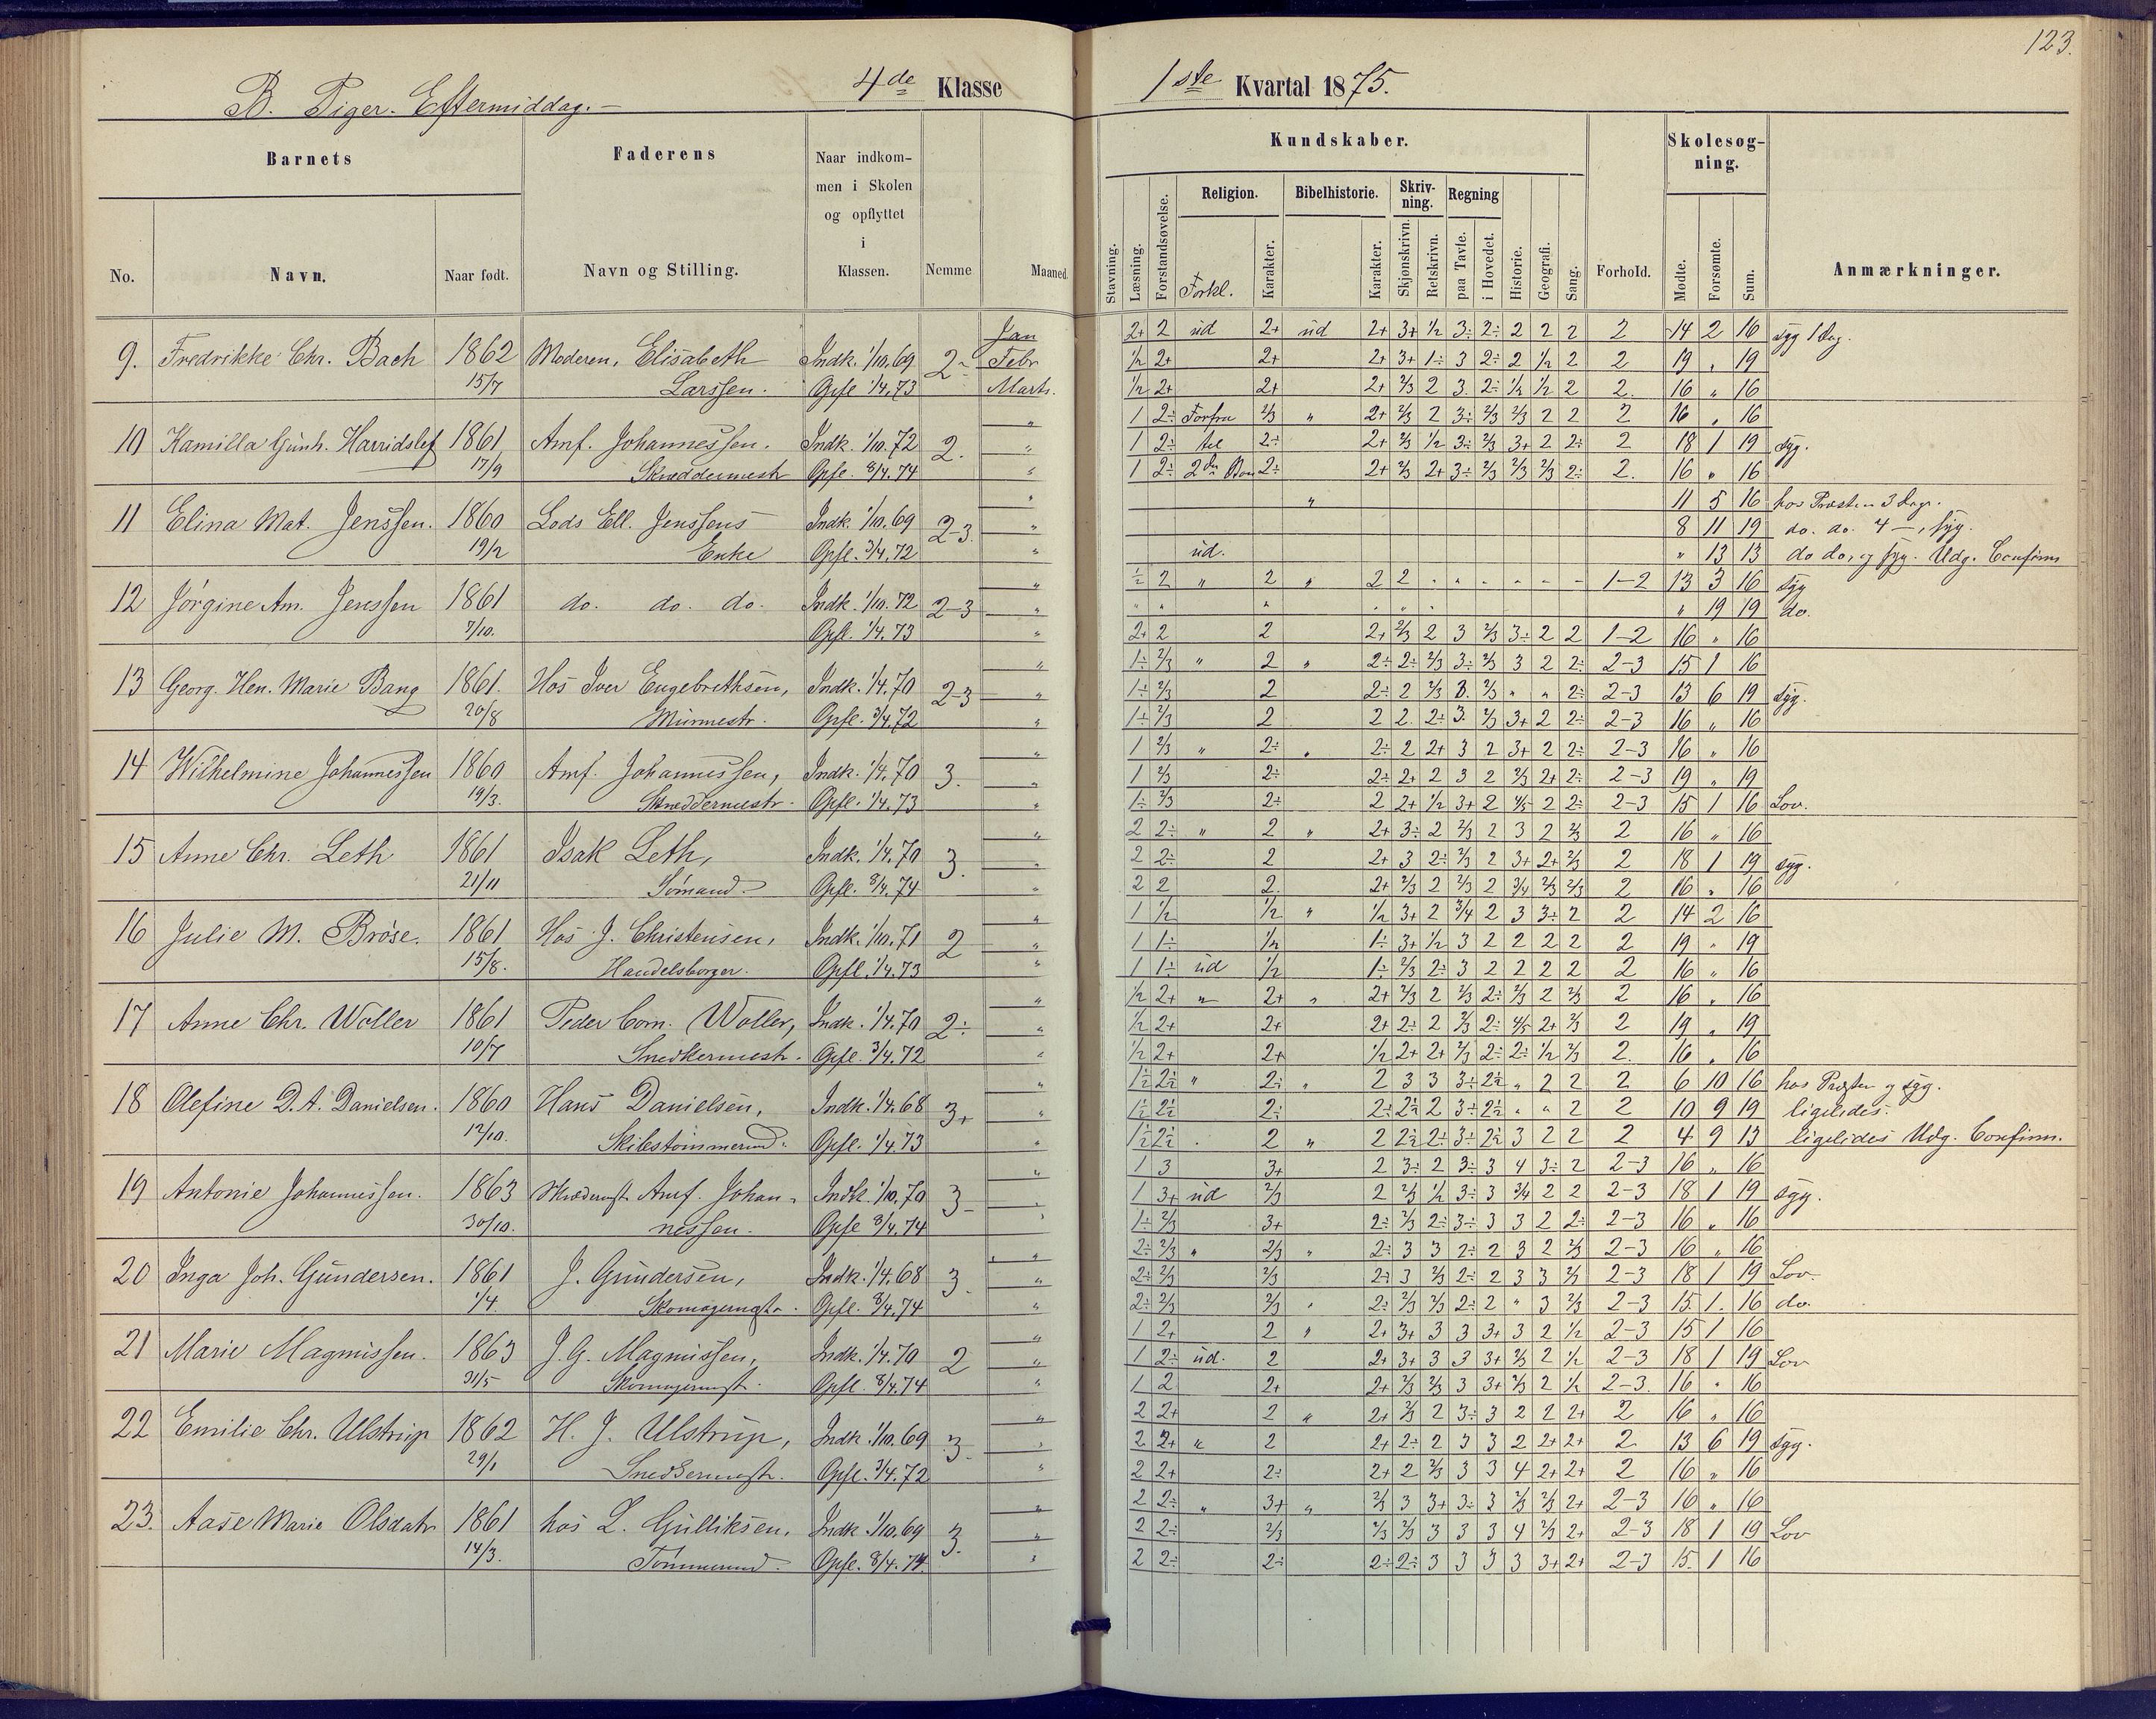 123.
B. Piger. Eftermiddag.
4de Klasse
1ste Kvartal 1875.
Barnets
Faderens
Naar indkommen i Skolen og opflyttet i Klassen.
Nemme
Maaned.
No.
Navn.
Naar født.
Navn og Stilling.
Kundskaber.
Stavning.
Læsning.
Forstandsøvelse.
Religion.
Forkl.
Karakter.
Bibelhistorie.
Karakter.
Skrivning.
Skjønskrivn.
Retskrivn.
Regning
paa Tavle.
i Hovedet.
Historie.
Geografi.
Sang.
Forhold.
Skolesøgning.
Mødte.
Forsømte.
Sum.
Anmærkninger.
9. Fredrikke Chr. Bach 1862 Moderen, Elisabeth Indk. 1/10.69 2÷ Jan
Febr
15/7 Larssen. Opfl. 1/4.73 Marts.
2+ 2 ud 2+ ud 2+ 3+ 1/2 3÷ 2÷ 2 2 2 2 14 2 16 syg 1 Dag.
1/2 2+ 2+ 2+ 3+ 1÷ 3 2÷ 2 1/2 2 2 19 " 19
1/2 2+ 2+ 2+ 2/3 2 3 2÷ 1/2 1/2 2 2. 16 " 16
10 Kamilla Gunh. Harridslef 1861 Amf. Johannessen. Indk. 1/10.72 2.
17/9 Skræddermestr Opfl. 8/4.74
1 2÷ Forfra 2/3 " 2+ 2/3 2 3÷ 2/3 2/3 2 2 2 16 " 16
1 2÷ til 2÷ 2+ 2/3 1/2 3÷ 2/3 3+ 2 2÷ 2 18 1 19 syg.
1 2÷ 2den 2÷ 2+ 2/3 2+ 3÷ 2/3 2/3 2/3 2÷ 2. 16 " 16
11 Elina Mat. Jenssen. 1860 Lods Ell. Jenssens Indk. 1/10.69 2-3.
19/2 Enke Opfl. 3/4.72
" 11 5 16 hos Præsten 3 Dage.
8 11 19 do. do. 4 —, syg.
ud. " 13 13 do do, og syg. Udg. Confirm
12 Jörgine Am. Jenssen 1861 do. do. do. Indk. 1/10.72 2-3
7/10. Opfl. 1/4.73
1/2 2 " 2 " 2 2 " " " " " " 1-2 13 3 16 syg
" 19 19 do.
2+ 2 2 2+ 2/3 2 3 2/3 3÷ 2 2 1-2 16 " 16
13 Georg. Hen. Marie Bang 1861. Hos Iver Engebrethsen, Indk. 1/4.70 2-3
20/8 Murmestr. Opfl. 3/4.72
1÷ 2/3 " 2 " 2÷ 2÷ 2/3 3÷ 2/3 3 2 2÷ 2-3 15 1 16
1÷ 2/3 2 2÷ 2 2/3 3. 2/3 " " 2÷ 2-3 13 6 19 syg.
1÷ 2/3 2 2 2. 2÷ 3. 2/3 3+ 2 2÷ 2-3 16 " 16
14 Wilhelmine Johannessen 1860 Amf. Johannessen, Indk. 1/4.70 3.
19/3. Skræddermestr. Opfl. 1/4.73
1 2/3 " 2÷ " 2÷ 2 2+ 3 2 3+ 2 2÷ 2-3 16 " 16
1 2/3 2÷ 2÷ 2+ 2 3 2 2/3 2+ 2÷ 2-3 19 " 19
1÷ 2/3 2÷ 2 2+ 1/2 3+ 2 4/5 2 2÷ 2-3 15 1 16 Lov.
15 Anne Chr. Leth 1861 Isak Leth, Indk. 1/4.70 3.
21/11 Sömand. Opfl. 8/4.74
2 2÷ " 2 " 2+ 3÷ 2 2/3 2 3 2 2/3 2 16 " 16
2 2÷ 2 2+ 3 2÷ 2/3 2 3+ 2+ 2/3 2 18 1 19 syg.
2 2 2. 2+ 2/3 2 2/3 2 3/4 2/3 2/3 2 16 " 16
16 Julie M. Bröse. 1861 Hos J. Christensen, Indk. 1/10.71 2
15/8. Handelsborger. Opfl. 1/4.73
1 1/2 1/2 " 1/2 3+ 2 3/4 2 3 3÷ 2 2 14 2 16
1 1÷ 1/2 1÷ 3+ 1/2 3 2 2 2 2 2 19 " 19
1 1÷ ud 1/2 1÷ 2/3 2÷ 3 2 2 2 2 2 16 " 16
17 Anne Chr. Woller 1861 Peder Corn. Woller, Indk. 1/4.70 2÷
10/7 Snedkermestr. Opfl. 3/4.72
1/2 2+ " 2+ " 2+ 2/3 2 2/3 2÷ 2/3 2 2/3 2 16 " 16
1/2 2+ 2+ 2+ 2÷ 2 2/3 2÷ 4/5 2+ 2/3 2 19 " 19
1/2 2+ 2+ 1/2 2+ 2+ 2/3 2÷ 2÷ 1/2 2/3 2. 16 " 16
18 Olefine D.A. Danielsen. 1860 Hans Danielsen, Indk. 1/4.68 3+
12/10. Skibstömmermd. Opfl. 1/4.73
1 1/2 2 1/2 " 2÷ " 2 3 3 3÷ 2 1/2 " 2 2 2 6 10 16 hos Præsten og syg.
1 1/2 2 1/2 2÷ 2÷ 2 1/2 2 3÷ 2 1/2 " " 2 2 10 9 19 ligeledes.
1 1/2 2 1/2 . 2 " 2 2 1/2 2÷ 3÷ 2 1/2 3 2 2 2 4 9 13 ligeledes Udg. Confirm.
19 Antonie Johannessen. 1863 Skrædermstr Amf. Johan- Indk. 1/10.70 3-
30/10. nessen. Opfl 8/4.74
1 3 3+ 2 3÷ 2 3÷ 3 4 3÷ 2 2-3 16 " 16
1 3+ ud 2/3 2 2/3 1/2 3÷ 3 3/4 2 2 2-3 18 1 19 syg.
1÷ 2/3 3+ 2÷ 2/3 2÷ 3÷ 3 3 2 2÷ 2-3 16 " 16
20 Inga Joh. Gundersen. 1861 J. Gundersen, Indk. 1/4.68 3.
1/4. Skomagermstr. Opfl. 8/4.74
2÷ 2/3 " 2/3 " 2÷ 3 3 2÷ 2 3 2 2/3 2-3 16 " 16
2÷ 2/3 2/3 2÷ 3 2/3 2÷ 2 3 3 2/3 2-3 18 1 19 Lov.
2÷ 2/3 2/3 " 2÷ 2/3 2/3 2÷ 2 " 3 2/3 2-3 15. 1. 16 do.
21 Marie Magnussen. 1863 J.G. Magnussen, Indk. 1/4.70 2
31/5 Skomagermst. Opfl. 8/4.74
1 2+ 2 " 2+ 3+ 3 3 3+ 3 2 1/2 2-3 15 1 16
1 2÷ ud. 2 2+ 3+ 3 3 3+ 2/3 2 1/2 2-3 18 1 19 Lov
1 2 2+ 2+ 2/3 2/3 3 3+ 2/3 2 1/2 2-3. 16 " 16
22 Emilie Chr. Ulstrup 1862 H. J. Ulstrup, Indk. 1/10.69 3-
29/1 Snedkermstr. Opfl. 3/4.72
2 2+ 2 " 2+ 2/3 2 3÷ 3 2 2 2+ 2 16 " 16
2 2+ " 2 2+ 2÷ 2 3 3 2 2+ 2+ 2 13 6 19 syg.
2 2+ 2÷ 2+ 2 2/3 3 3 4 2+ 2+ 2 16 " 16
23. Aase Marie Olsdatr 1861 hos L. Gulliksen, Indk. 1/10.69 3.
14/3. Tömmermd. Opfl. 8/4.74.
2 2÷ " 3+ " 2/3 3 3+ 3÷ 3 2/3 2/3 2+ 2-3 16 " 16
2 2÷ 2/3 2/3 2/3 3 3 3 4 2/3 2+ 2-3 18 1 19 Lov
2 2÷ 2÷ 2÷ 2÷ 3 3 3 3 3+ 2+ 2-3 15. 1 16